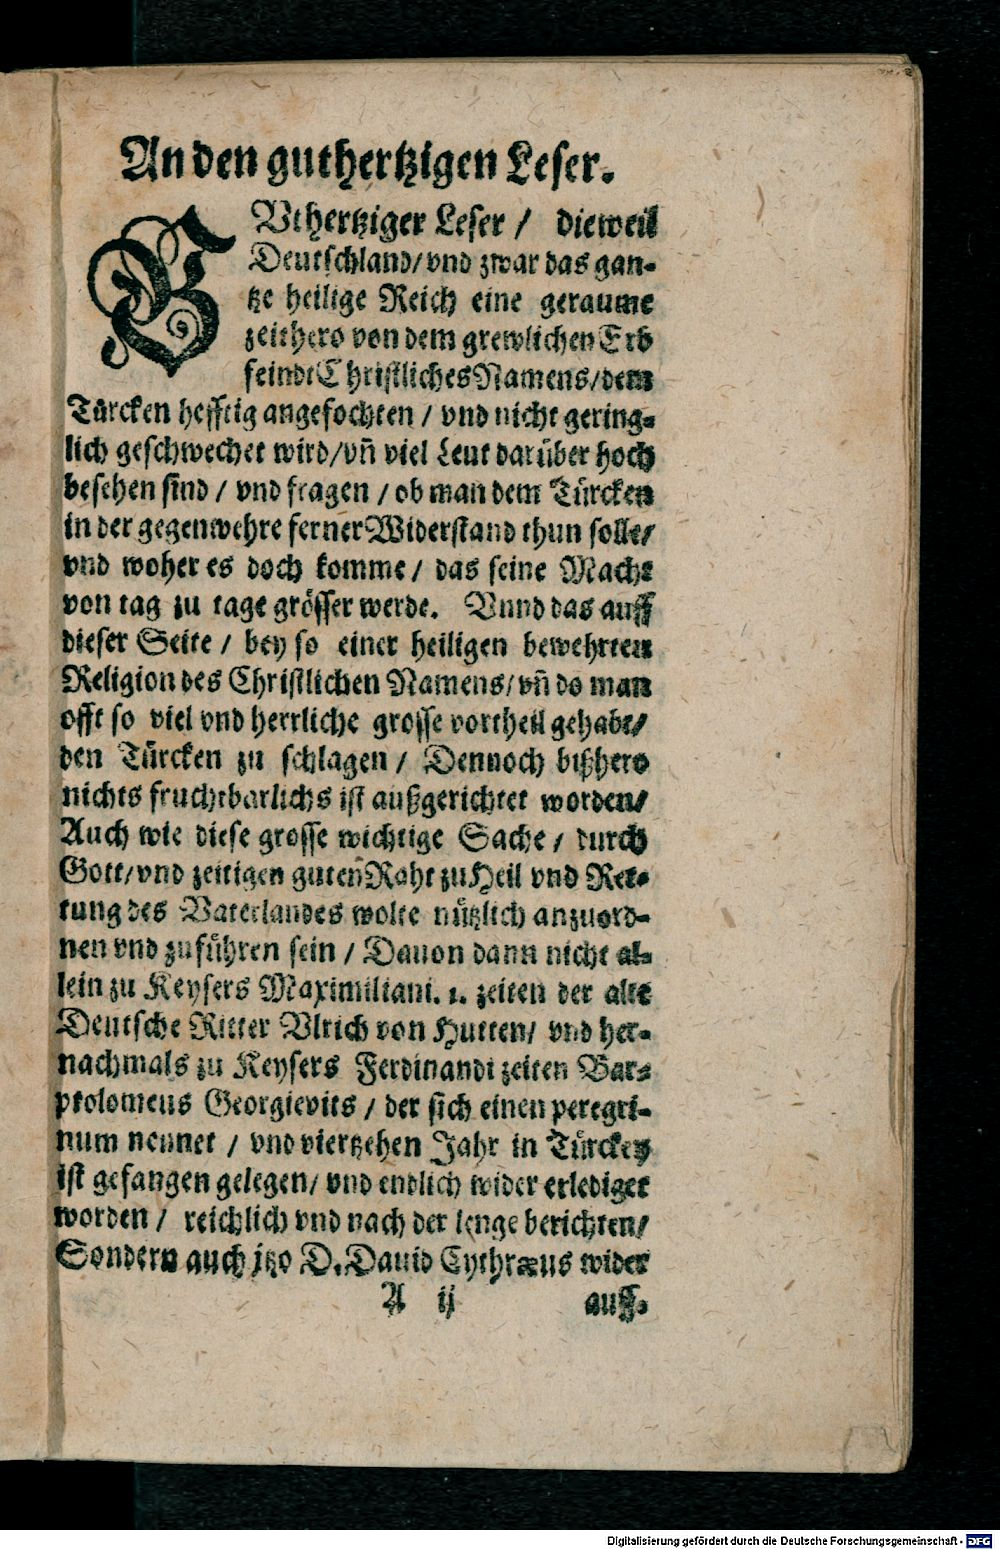 An den guthertzigen Leser.
GVthertziger Leser / dieweil
Deutschland/vnd zwar das gan-
tze heilige Reich eine geraume
zeithero von dem grewlichen Erb
feindt Christliches Namens/dem
Türcken hefftig angefochten / vnd nicht gering-
lich geschwechet wird/vn̄ viel Leut darüber hoch
besehen sind / vnd fragen / ob man dem Türcken
in der gegenwehre ferner Widerstand thun solle/
vnd woher es doch komme / das seine Macht
von tag zu tage grösser werde. Vnnd das auff
dieser Seite / bey so einer heiligen bewehrten
Religion des Christlichen Namens/vn̄ do man
offt so viel vnd herrliche grosse vortheil gehabt/
den Türcken zu schlagen / Dennoch bißhero
nichts fruchtbarlichs ist außgerichtet worden/
Auch wie diese grosse wichtige Sache / durch
Gott/vnd zeitigen guten Raht zu Heil vnd Ret-
tung des Vaterlandes wolte nützlich anzuord-
nen vnd zuführen sein / Dauon dann nicht al-
lein zu Keysers Maximiliani. 1. zeiten der alte
Deutsche Ritter Vlrich von Hutten/ vnd her-
nachmals zu Keysers Ferdinandi zeiten Bar-
ptolomeus Georgievits / der sich einen peregri-
num nennet / vnd viertzehen Jahr in Türckey
ist gefangen gelegen/ vnd endlich wider erlediget
worden / reichlich vnd nach der lenge berichten/
Sondern auch jtzo D. Dauid Cythræus wider
A ij auff-
Digitalisierung gefördert durch die Deutsche Forschungsgemeinschaft - DFG